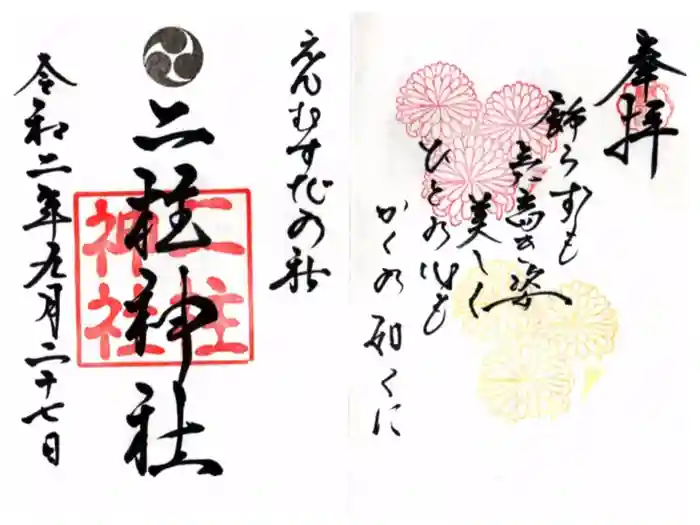 奉拝
飾らずも
気高き姿
美しく
ひとの心も
かくの如くに
えんむすびの社
二柱神社
二柱
神社
令和二年九月二十七日